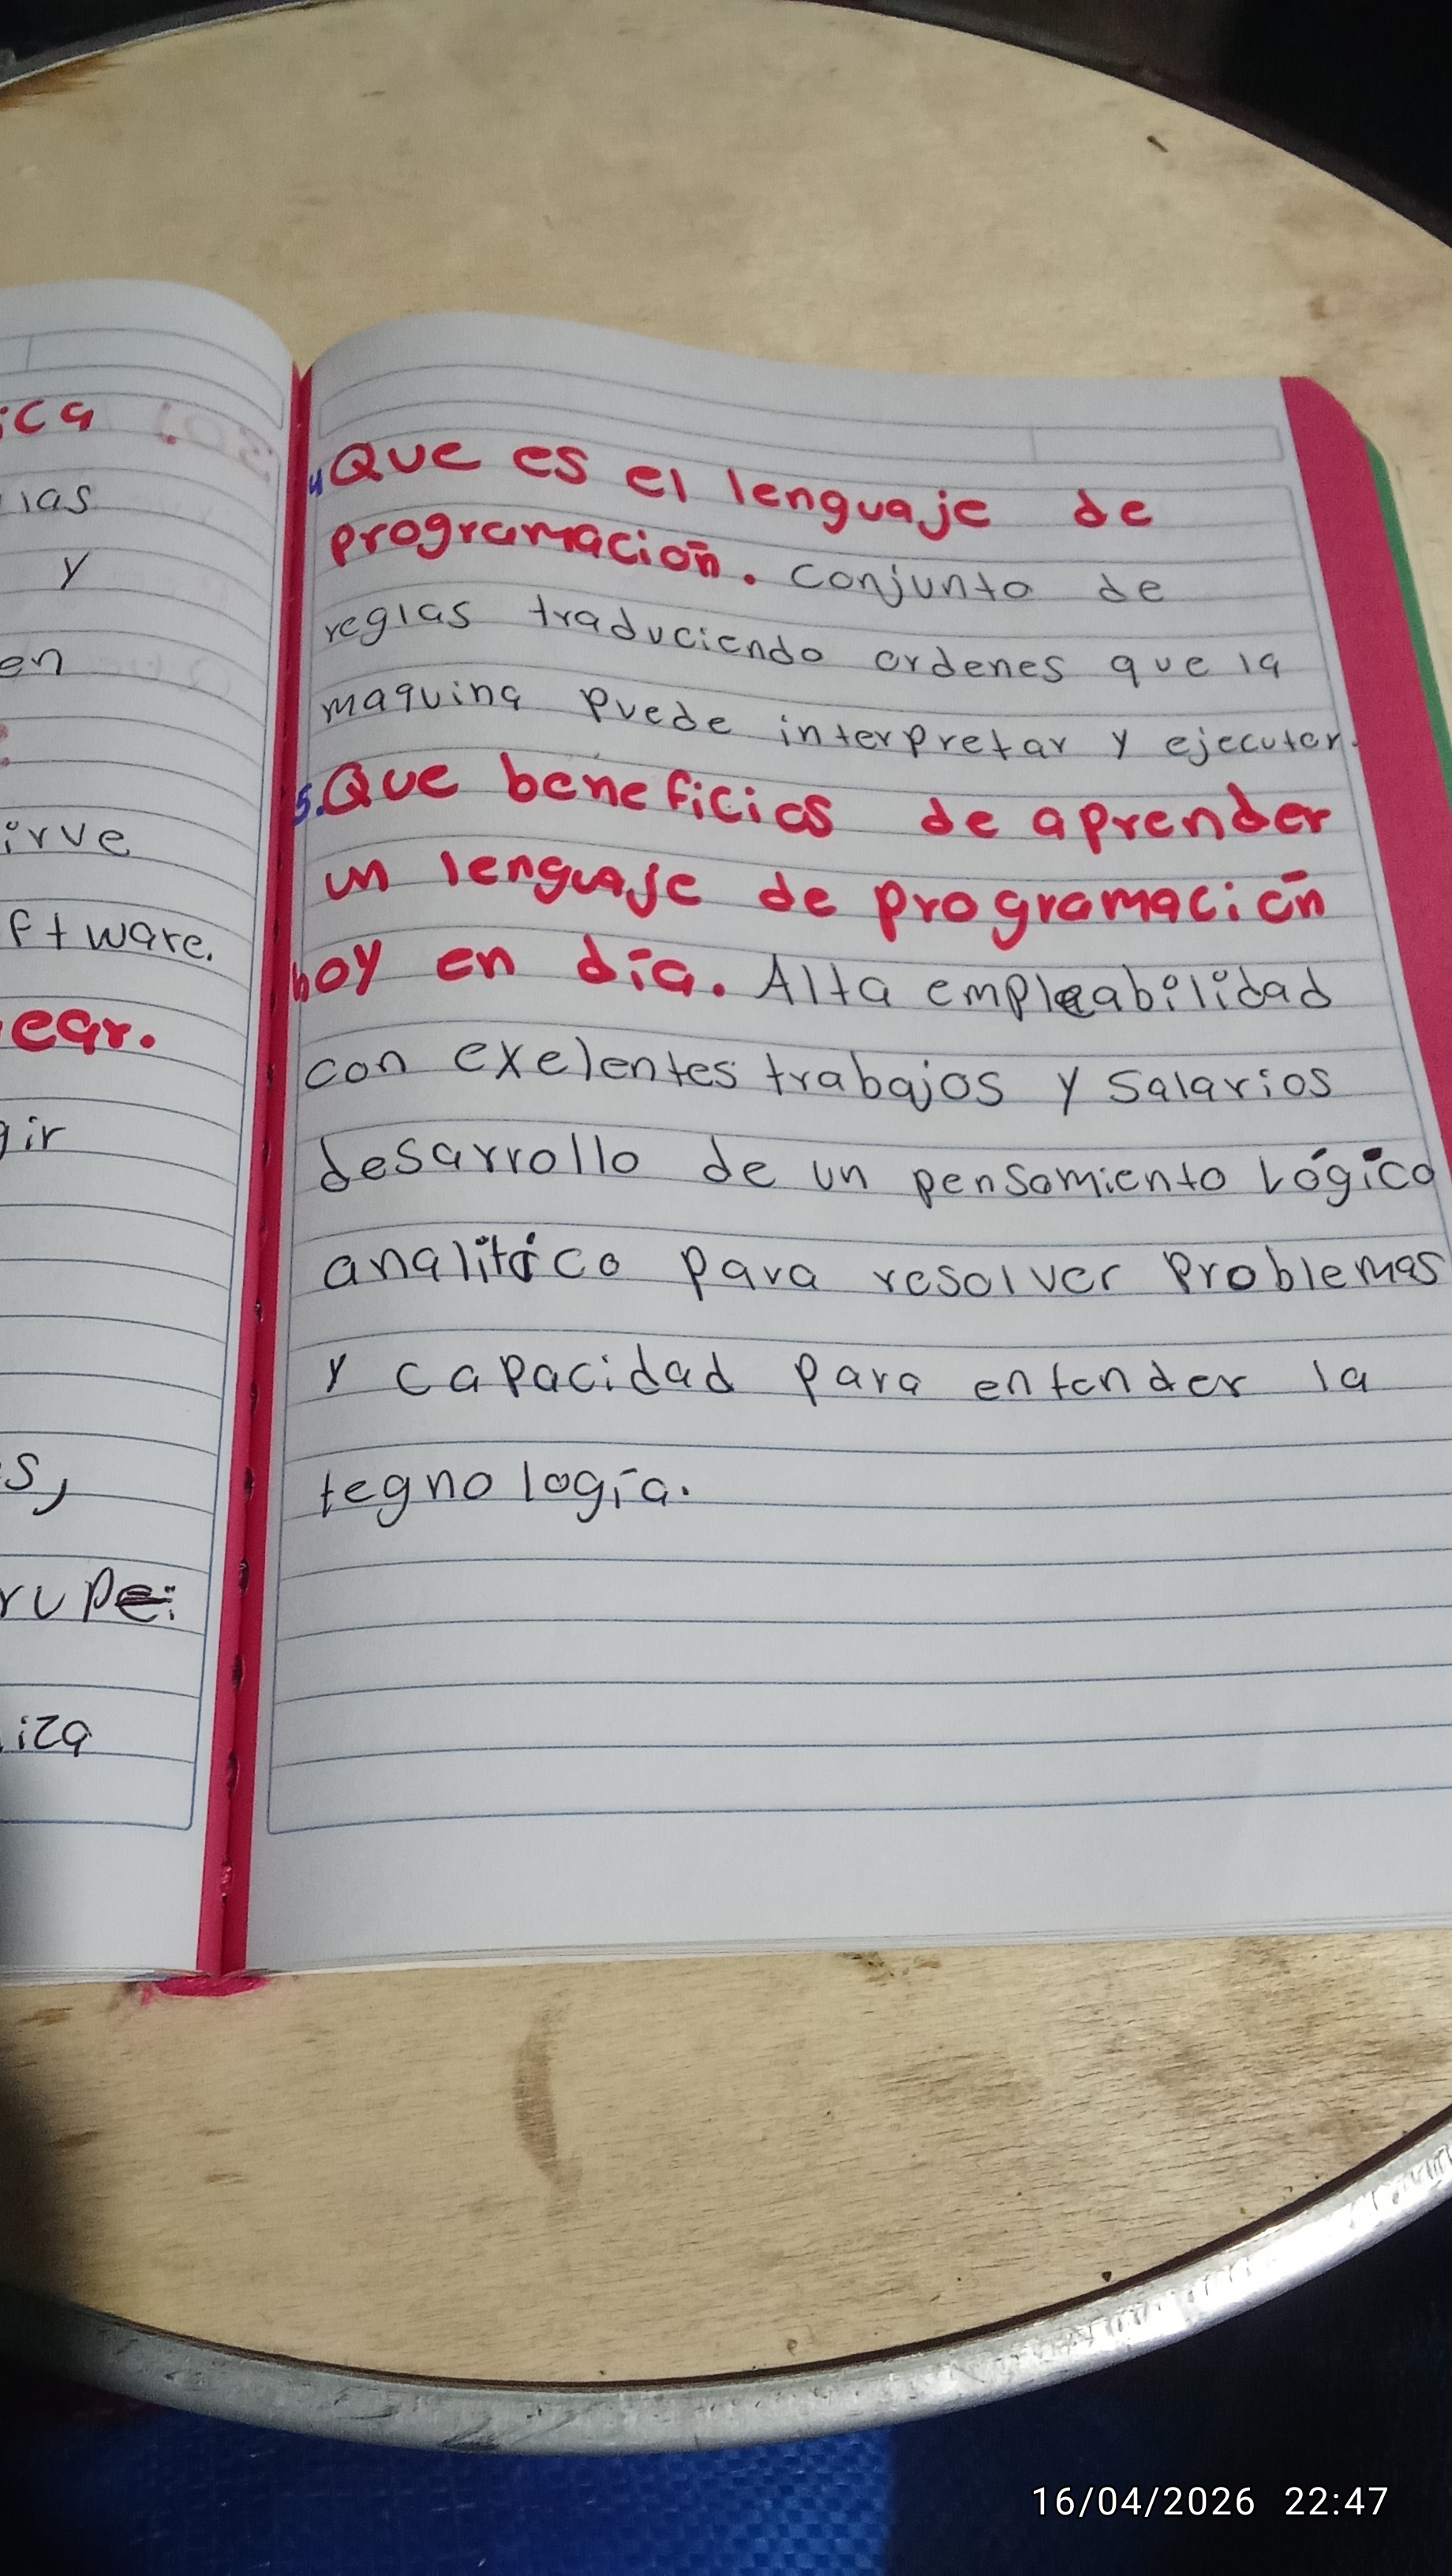 ica
ias
y
en
irve
ftware.
ear.
gir
s,
rupe:
iza
4 Que es el lenguaje de
programación. conjunto de
reglas traduciendo ordenes que la
maquina puede interpretar y ejecutar.
5. Que beneficios de aprender
un lenguaje de programación
hoy en día. Alta empleabilidad
con exelentes trabajos y salarios
desarrollo de un pensamiento Lógico
analitico para resolver problemas
y capacidad para entender la
tegnología.
16/04/2026 22:47